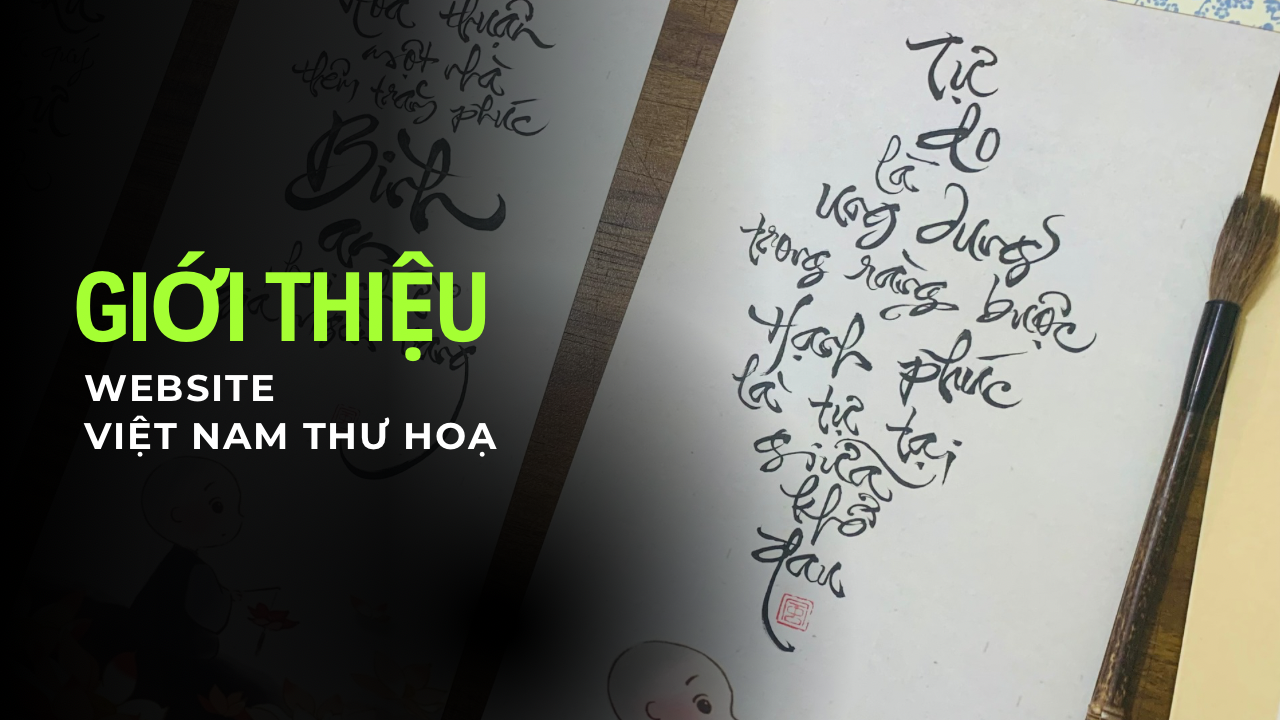 GIỚI THIỆU
WEBSITE
VIỆT NAM THƯ HOẠ
Hoà thuận
một nhà
thêm trang phúc
Bình
an
Tự
do
là
ung dung
trong ràng buộc
Hạnh phúc
là tự tại
giữa
khổ
đau